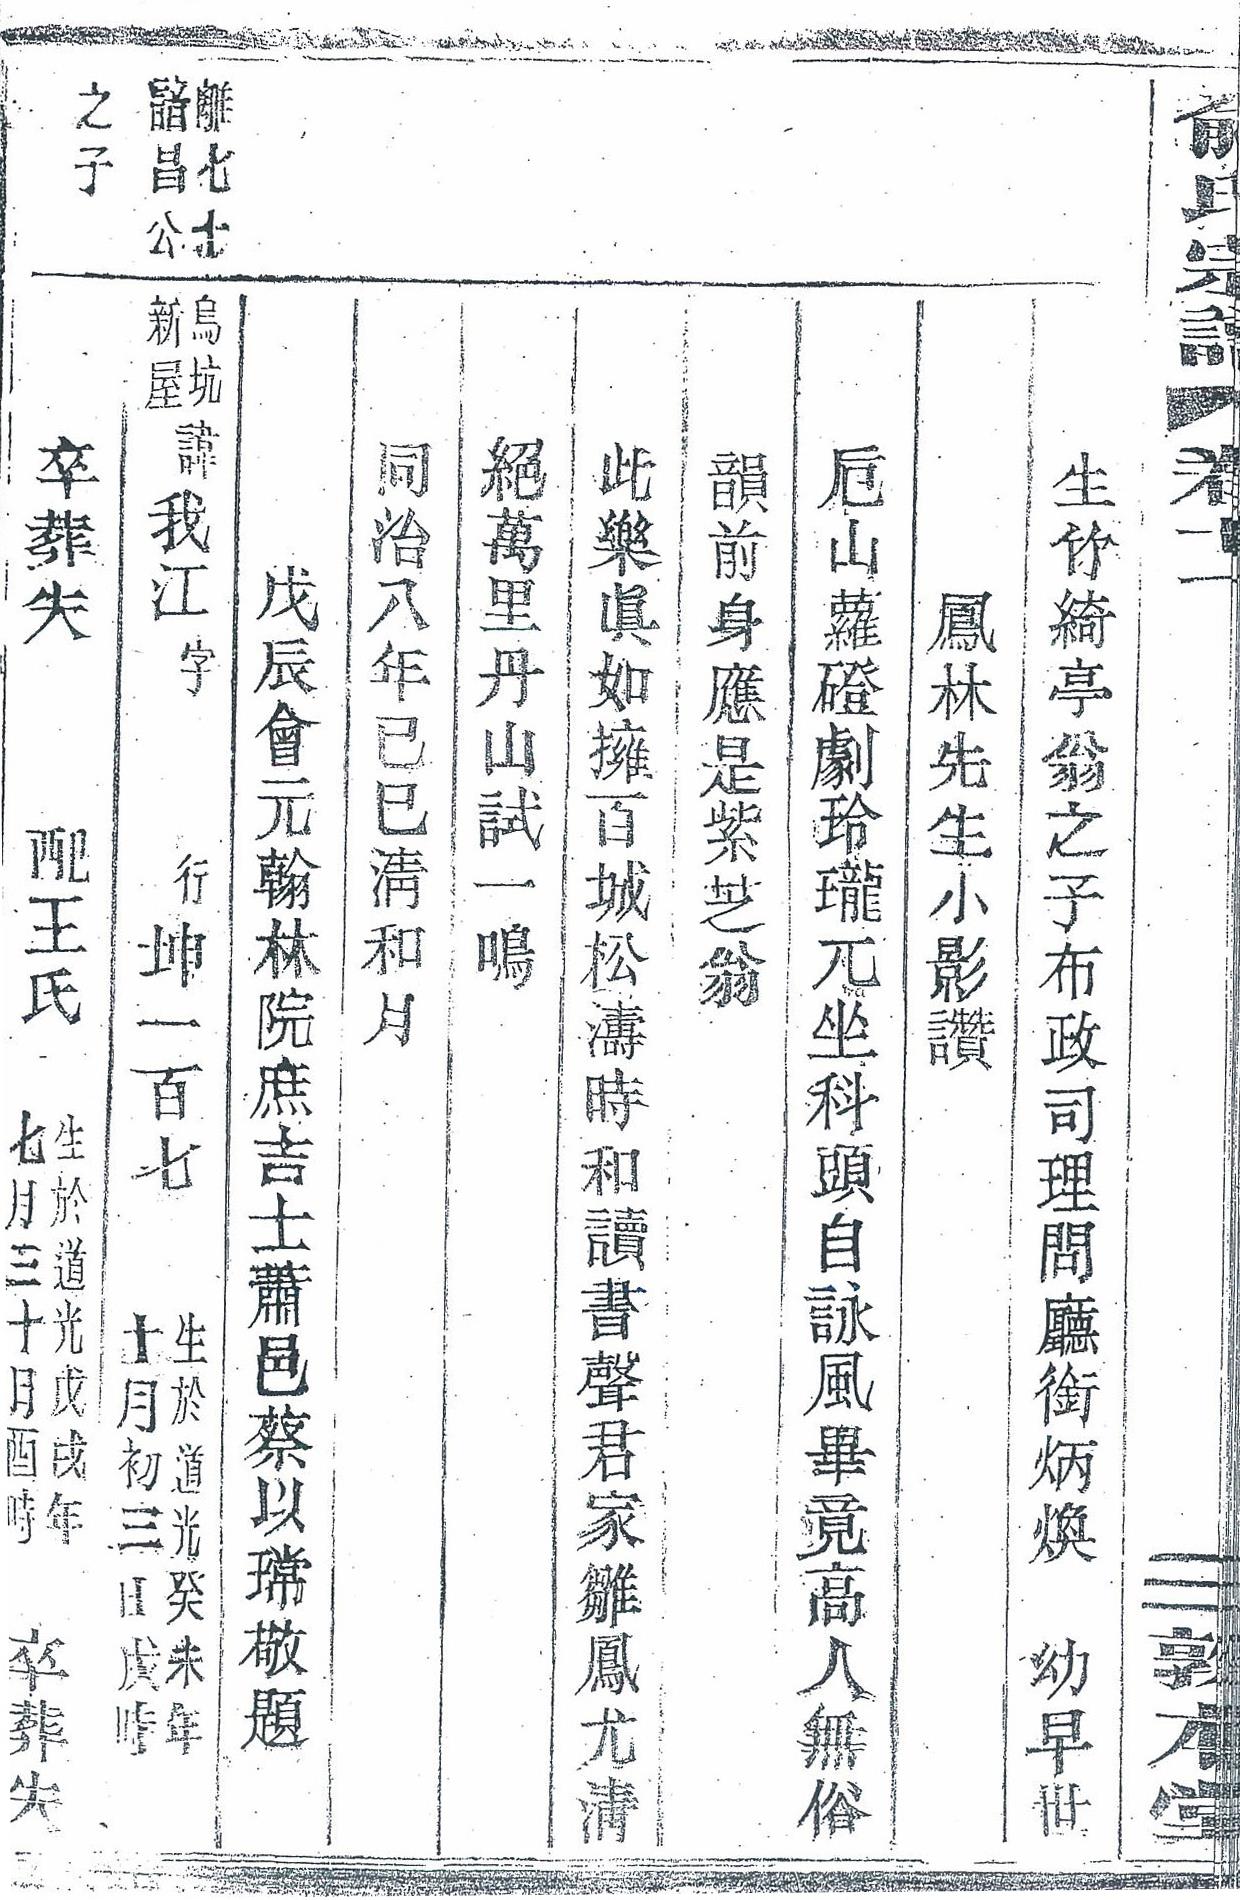 俞氏宗譜
卷二
三
敦本堂
生竹綺亭翁之子布政司理問廳銜炳煥　幼早世
鳳林先生小影讚
巵山蘿磴劇玲瓏兀坐科頭自詠風畢竟高人無俗
韻前身應是紫芝翁
此樂眞如擁百城松濤時和讀書聲君家雛鳳尤清
絕萬里丹山試一鳴
同治八年己巳清和月
戊辰會元翰林院庶吉士蕭邑蔡以瑺敬題
離七士
諧昌公
之子
烏坑
新屋
諱我江字　行坤一百七
生於道光癸未年
十月初三日戌時
卒葬失　配王氏
生於道光戊戌年
七月三十日酉時
卒葬失